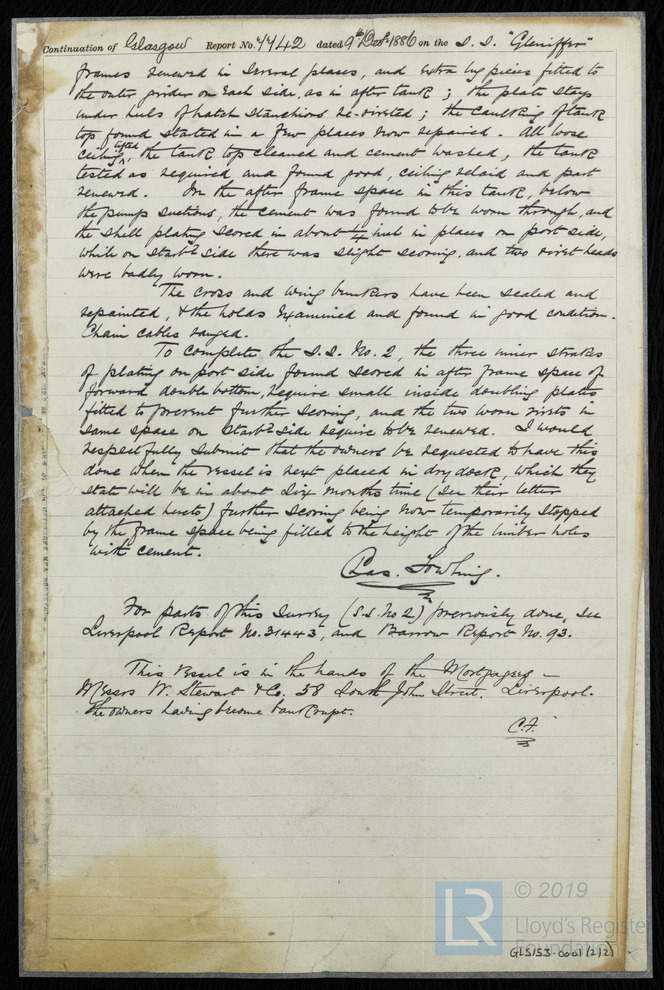 Continuation of Glasgow Report No. 7742 dated 9th Oct. 1886 on the S. S. "Gleniffer"
frames renewed in several places, and extra lug pieces fitted to
the outer girder on each side, as in after tank; the plate stays
under heels of hatch stanchions re-riveted; the caulking of tank
top found started in a few places now repaired. All loose
ceiling lifted, the tank top cleaned and cement washed, the tank
tested as required and found good, ceiling relaid and part
renewed. In the after frame space in this tank, below
the pump suctions, the cement was found to be worn through, and
the shell plating scored in about 1/4 inch in places on port side,
while on starbd side there was slight scoring, and two rivet heads
were badly worn.
The cross and wing bunkers have been scaled and
repainted, & the holds examined and found in good condition.
Chain cables ranged.
To complete the S.S. No. 2, the three inner strakes
of plating on port side found scored in after frame space of
forward double bottom, require small inside doubling plates
fitted to prevent further scoring, and the two worn rivets in
same space on starbd side require to be renewed. I would
respectfully submit that the owners be requested to have this
done when the vessel is next placed in dry dock, which they
state will be in about six months time (see their letter
attached hereto) further scoring being now temporarily stopped
by the frame space being filled to the height of the limber holes
with cement.
Chas.
For parts of this Survey (S.S. No 2) previously done, see
Liverpool Report No. 31443, and Barrow Report No. 93.
This vessel is in the hands of the Mortgagees –
Messrs W. Stewart & Co. 38 South John Street. Liverpool.
the owners having become bankrupt.
C.F.
LR © 2019
Lloyd's Register
Foundation
GLS153-0001 (2/2)